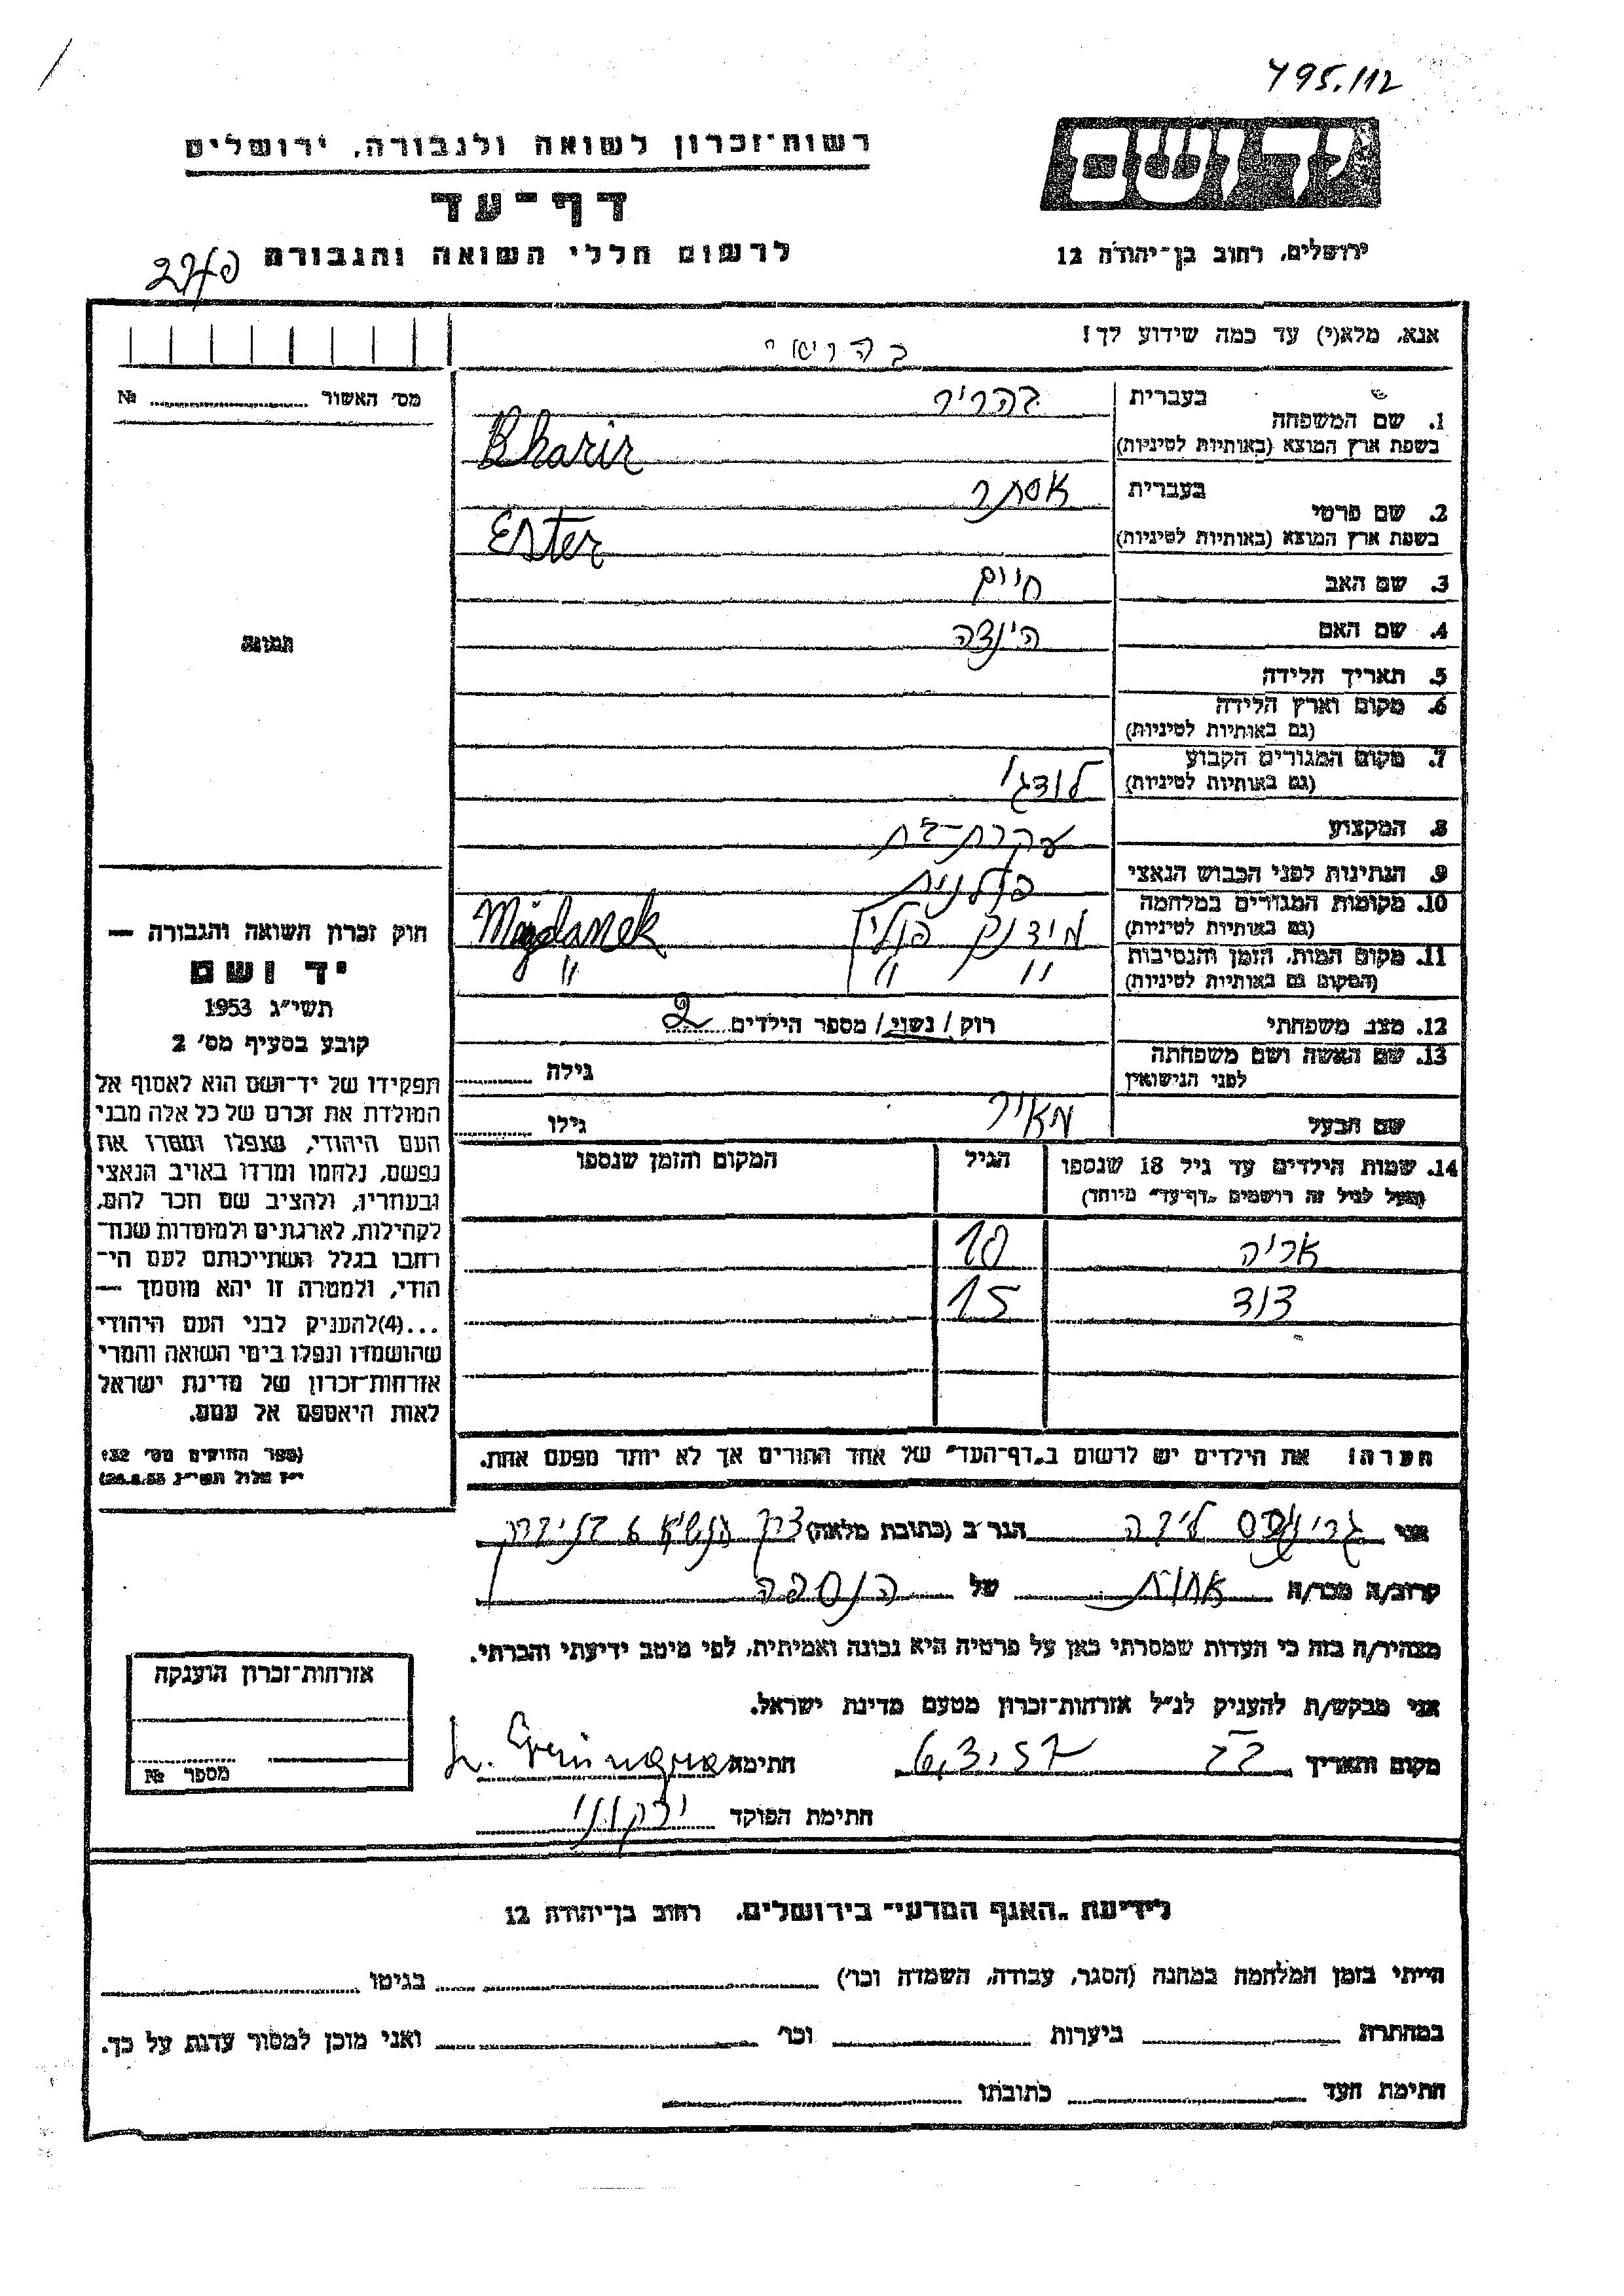 795.112
רשות־זכרון לשואה ולגבורה, ירושלים
דף־עד
לרשום חללי השואה והגבורה
ירושלים, רחוב בן־יהודה 12
אנא, מלא(י) עד כמה שידוע לך!
מס׳ האשור № 
בעברית בהריר
1. שם המשפחה
בשפת ארץ המוצא (באותיות לטיניות) Bharir
בעברית אסתר
2. שם פרטי
בשפת ארץ המוצא (באותיות לטיניות) Ester
3. שם האב חיים
4. שם האם הינצה
תמונה
5. תאריך הלידה
6. מקום וארץ הלידה
(גם באותיות לטיניות)
7. מקום המגורים הקבוע
(גם באותיות לטיניות) לודג׳
8. המקצוע עקרת-בית
9. הנתינות לפני הכבוש הנאצי פולנית
10. מקומות המגורים במלחמה
(גם באותיות לטיניות) מידנק פולין Majdanek
11. מקום המות, הזמן והנסיבות
(המקום גם באותיות לטיניות) " " "
12. מצב משפחתי רוק / נשוי / מספר הילדים 2
13. שם האשה ושם משפחתה
לפני הנישואין גילה
שם הבעל מאיר גילו
14. שמות הילדים עד גיל 18 שנספו הגיל המקום והזמן שנספו
(מעל לגיל זה רושמים „דף־עד” מיוחד)
אריה 10
דוד 15
חוק זכרון השואה והגבורה —
יד ושם
תשי״ג 1953
קובע בסעיף מס׳ 2
תפקידו של יד־ושם הוא לאסוף אל
המולדת את זכרם של כל אלה מבני
העם היהודי, שנפלו ומסרו את
נפשם, נלחמו ומרדו באויב הנאצי
ובעוזריו, ולהציב שם וזכר להם,
לקהילות, לארגונים ולמוסדות שנח־
רבו בגלל השתייכותם לעם הי־
הודי, ולמטרה זו יהא מוסמך —
...(4)להעניק לבני העם היהודי
שהושמדו ונפלו בימי השואה והמרי
אזרחות־זכרון של מדינת ישראל
לאות היאספם אל עמם.
(ספר החוקים מס׳ 132
י״ז אלול תשי״ג 28.8.53)
הערה! את הילדים יש לרשום ב„דף־העד” של אחד ההורים אך לא יותר מפעם אחת.
אני לידה הגר ב (כתובת מלאה) דרך הנשיא 6
קרוב/ה מכר/ה אחות של הנספה
מצהיר/ה בזה כי העדות שמסרתי כאן על פרטיה היא נכונה ואמיתית, לפי מיטב ידיעתי והכרתי.
אני מבקש/ת להעניק לנ״ל אזרחות־זכרון מטעם מדינת ישראל.
מקום ותאריך 6.3.57 חתימה
חתימת הפוקד
אזרחות־זכרון הוענקה
מספר №
לידיעת „האגף המדעי” בירושלים, רחוב בן־יהודה 12
הייתי בזמן המלחמה במחנה (הסגר, עבודה, השמדה וכו׳) בגיטו
במחתרת ביערות וכו׳ ואני מוכן למסור עדות על כך.
חתימת העד כתובתו